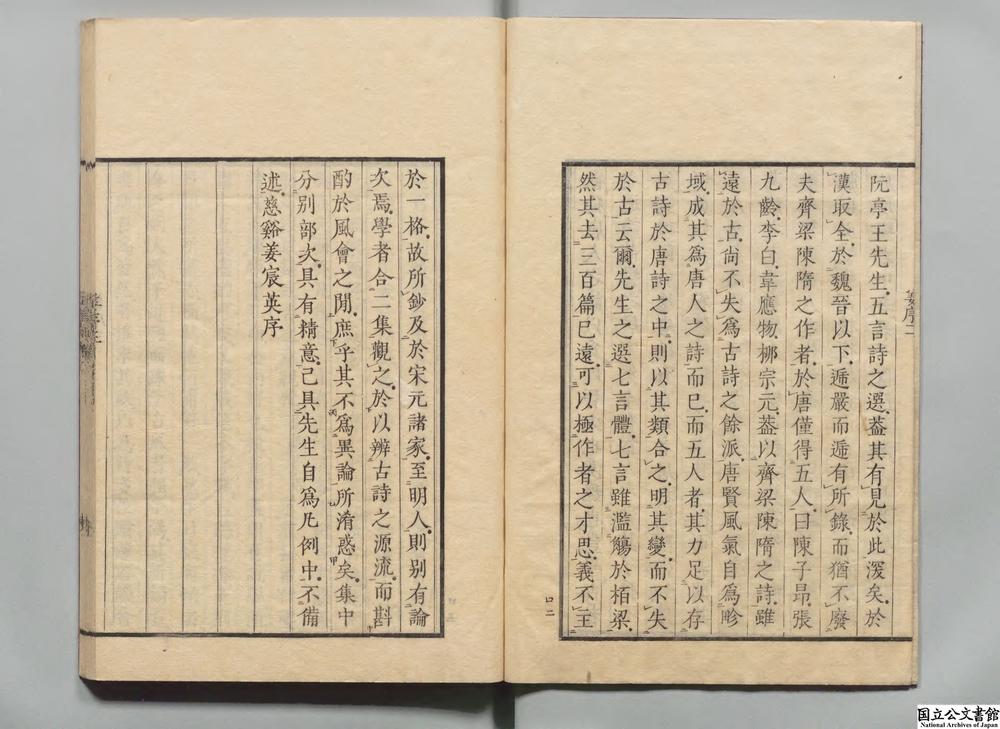 阮亭王先生五言詩之選葢其有見於此深矣於
漢取全於魏晉以下遞嚴而遞有所錄而猶不廢
夫齊梁陳隋之作者於唐僅得五人曰陳子昂張
九齡李白韋應物栁宗元葢以齊梁陳隋之詩雖
遠於古尚不失爲古詩之餘派唐賢風氣自爲畛
域成其爲唐人之詩而已而五人者其力足以存
古詩於唐詩之中則以其類合之明其變而不失
於古云爾先生之選七言體七言雖濫觴於栢梁
然其去三百篇已遠可以極作者之才思義不主
姜序二
於一格故所鈔及於宋元諸家至明人則别有論
次焉學者合二集觀之於以辨古詩之源流而斟
酌於風會之閒庶乎其不爲異論所淆惑矣集中
分别部次具有精意己具先生自爲凡例中不備
述慈谿姜宸英序
国立公文書館
National Archives of Japan